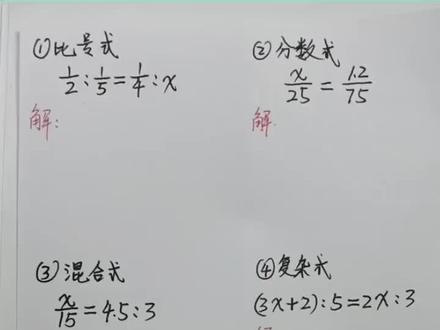 ①比号式
1/2:1/5=1/4:x
解:
②分数式
x/25=1.2/75
解.
③混合式
x/15=4.5:3
④复杂式
(3x+2):5=2x:3